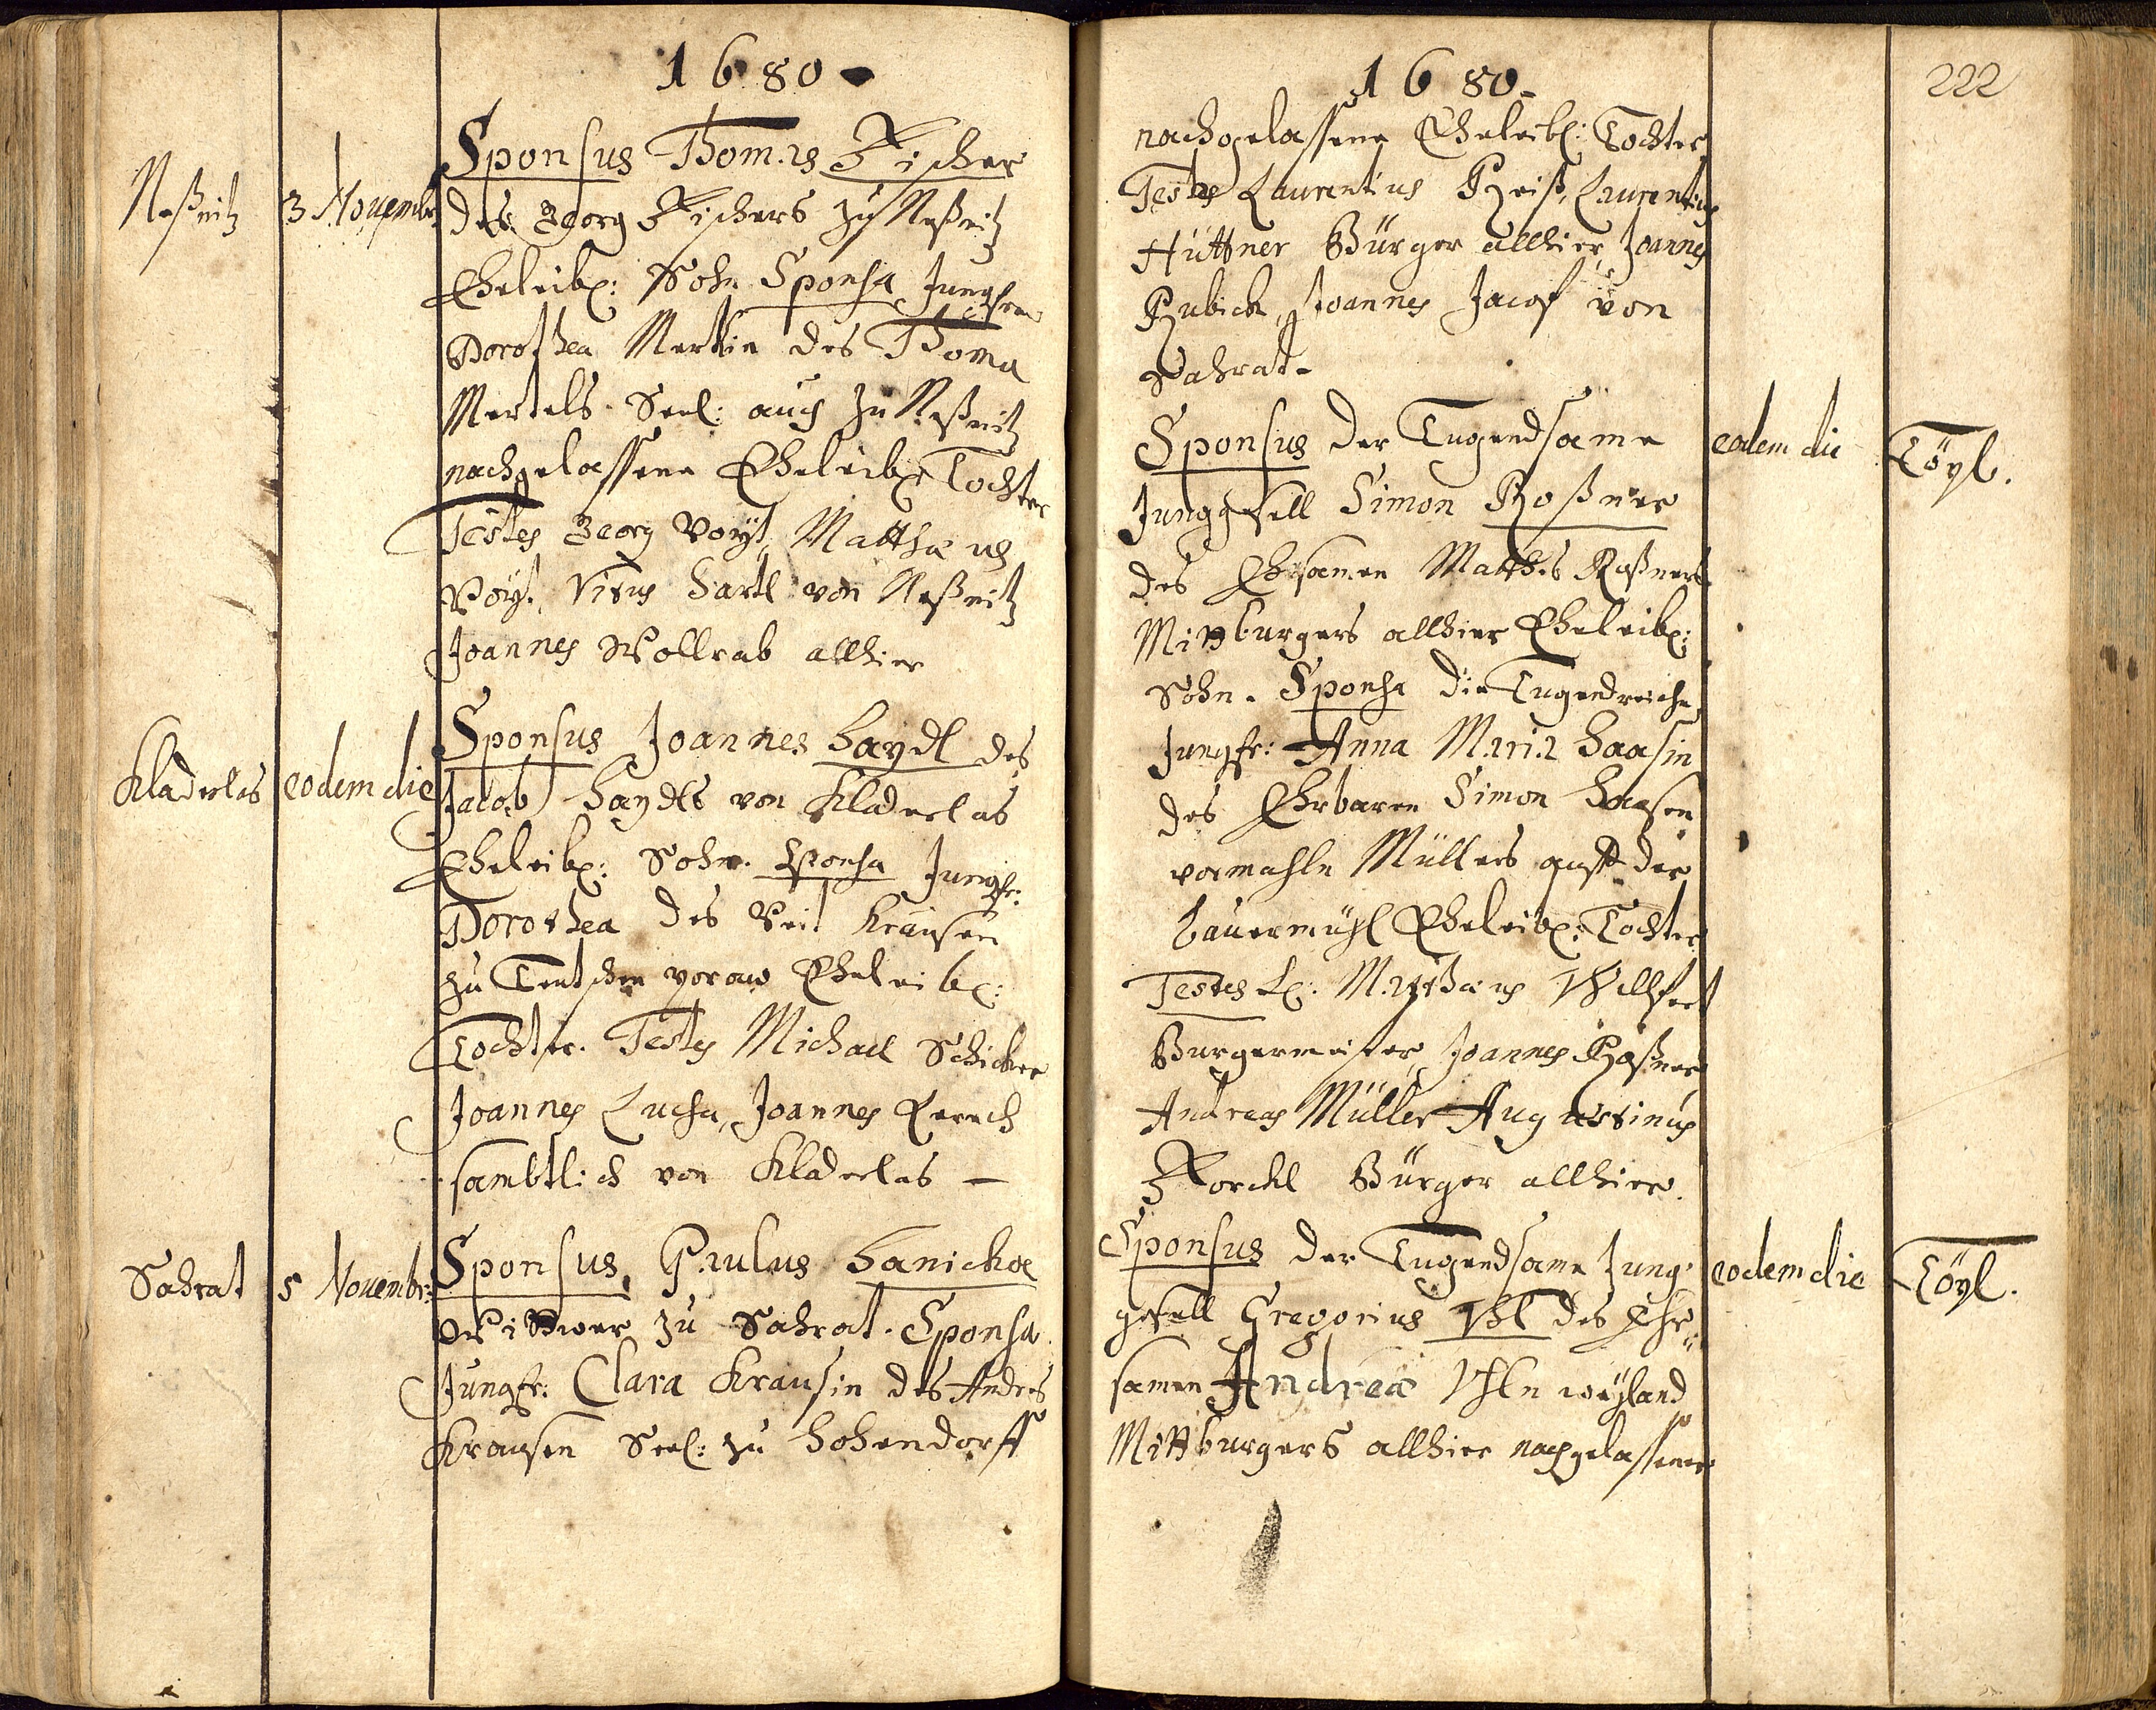 1680
Neßnitz 3 Novembr: Sponsus Thomas Fischer
des Georg Fischers zu Neßnitz
Eheleibl: Sohn Sponsa Jungfrau
Dorothea Mertlin des Thoma
Mertels Seel: auch zu Neßnitz
nachgelassene Eheleibl: Tochter
Testes Georg Voyt, Matthæus
Voyt, Vitus Hartl von Neßnitz
Joannes Wollrab allhier
Kladerlas eodem die Sponsus Joannes Haydl des
Jacob Haydls von Kladerlas
Eheleibl: Sohn. Sponsa Jungfr:
Dorothea des Veit Krausen
zu Teutschen Eheleibl:
Tochter. Testes Michael Schicker
Joannes Lucha, Joannes Lerch
sambtlich von Kladerlas –
Sahrat 5 Novembr: Sponsus, Paulus Hanickæ
Wittwer zu Sahrat. Sponsa
Jungfr: Clara Krausin des Andres
Krausen Seel: zu Hohendorff
222
1680
nachgelassene Eheleibl: Tochter
Testes Laurentius Reiß, Laurentius
Hüttner Bürger allhier, Joannes
Rubick, Joannes Jacob von
Sahrat
Sponsus der Tugendsame eodem die Töpl.
Junggsell Simon Roßner
des Ehrsamen Matthes Roßners
Mittburgers allhier Eheleibl:
Sohn. Sponsa die Tugendreiche
Jungfr: Anna Maria Haasin
des Ehrbaren Simon Haasen
vormahls Müllers auff der
Bauermühl Eheleibl: Tochter
Testes H: Matthæus Willfert
Burgermeister, Joannes Roßner
Andreas Müller Augustinus
Forckl Bürger allhier.
Sponsus der Tugendsame Jung- eodem die Töpl.
gesell Gregorius Uhl des Ehr-
samen Andreæ Uhln weyland
Mittburgers allhier nachgelassener